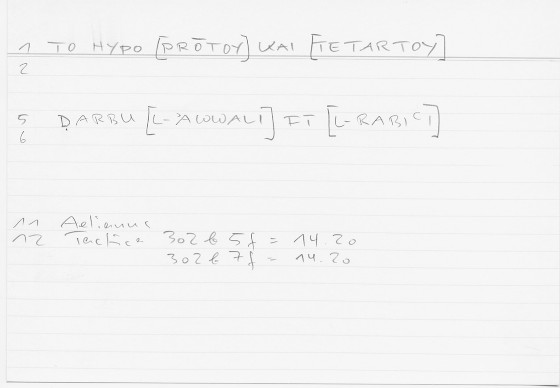 1 TO HYPO [PRŌTOY] KAI [TETARTOY]
2
5 ḌARBU [L-ʾAWWALI] FT [L-RABIʿI]
6
11 Aelianus
12 Tactica 302 b 5 f = 14.20
302 b 7 f = 14.20